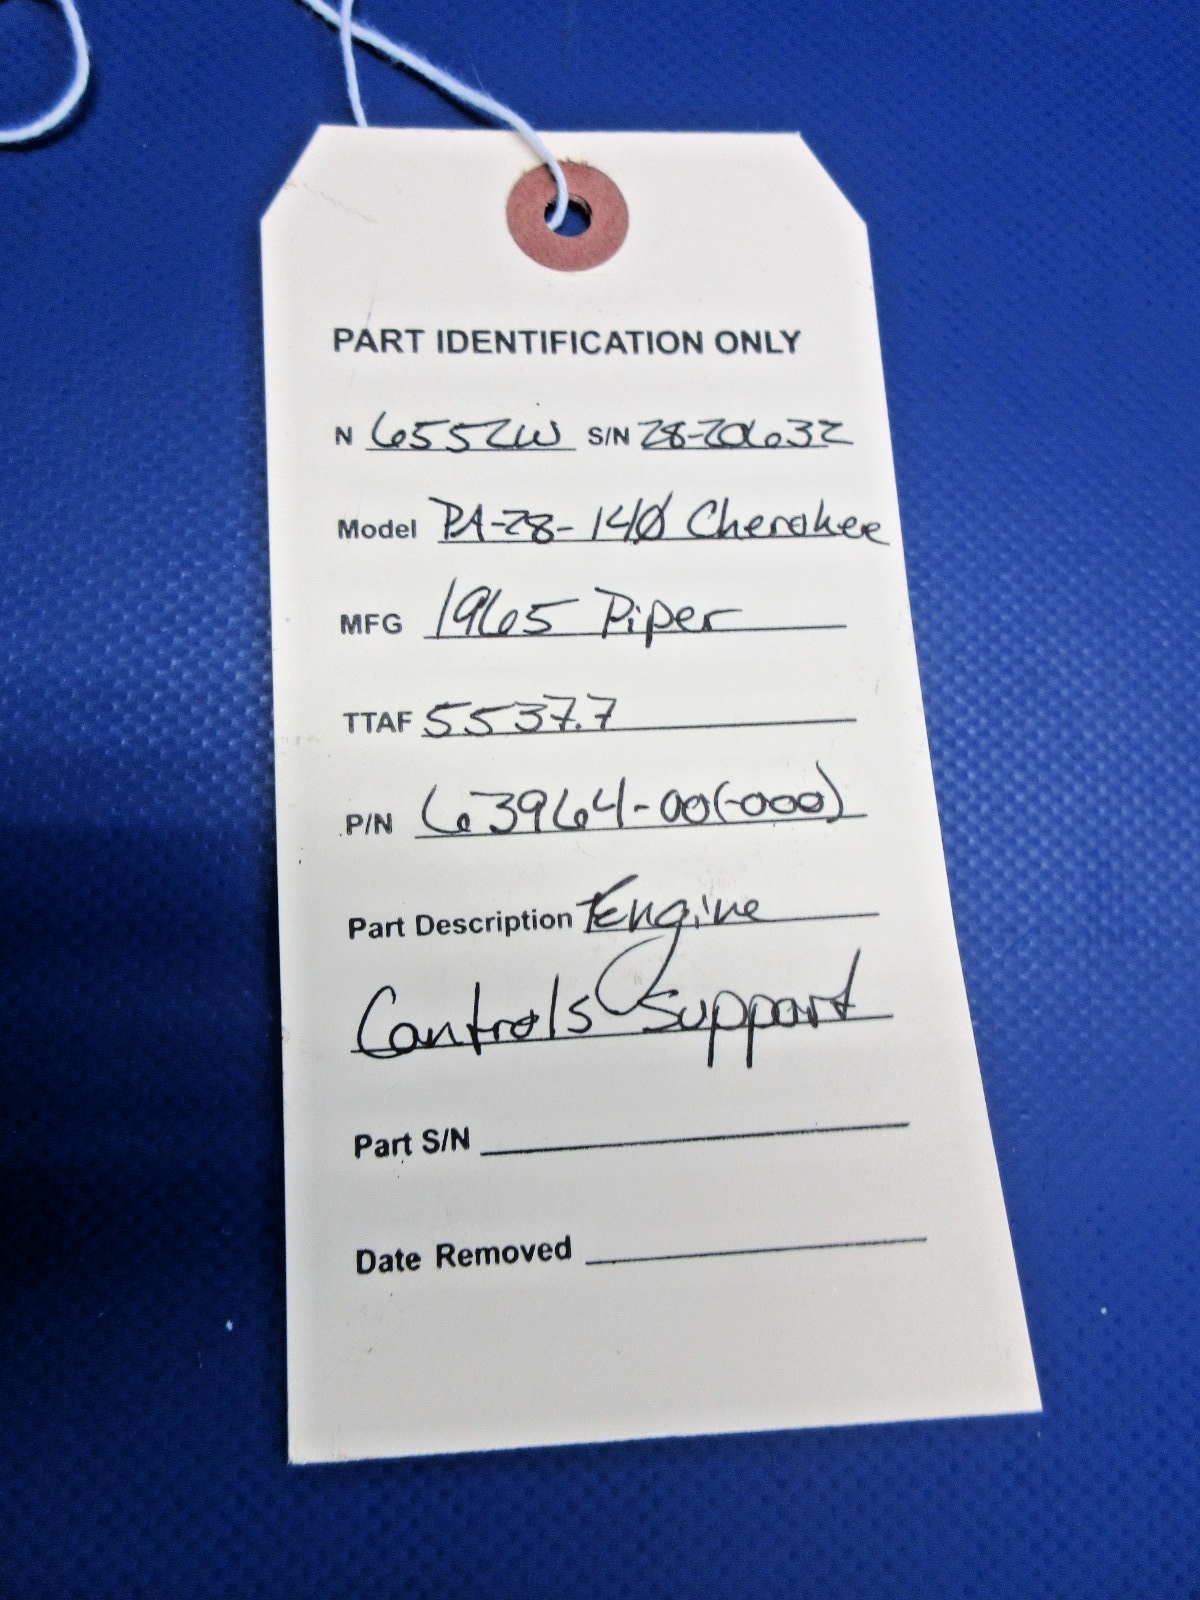 PART IDENTIFICATION ONLY
N 6552W S/N 28-20632
Model PA-28-140 Cherokee
MFG 1965 Piper
TTAF 5537.7
P/N 63964-00(-000)
Part Description Engine
Controls Support
Part S/N
Date Removed